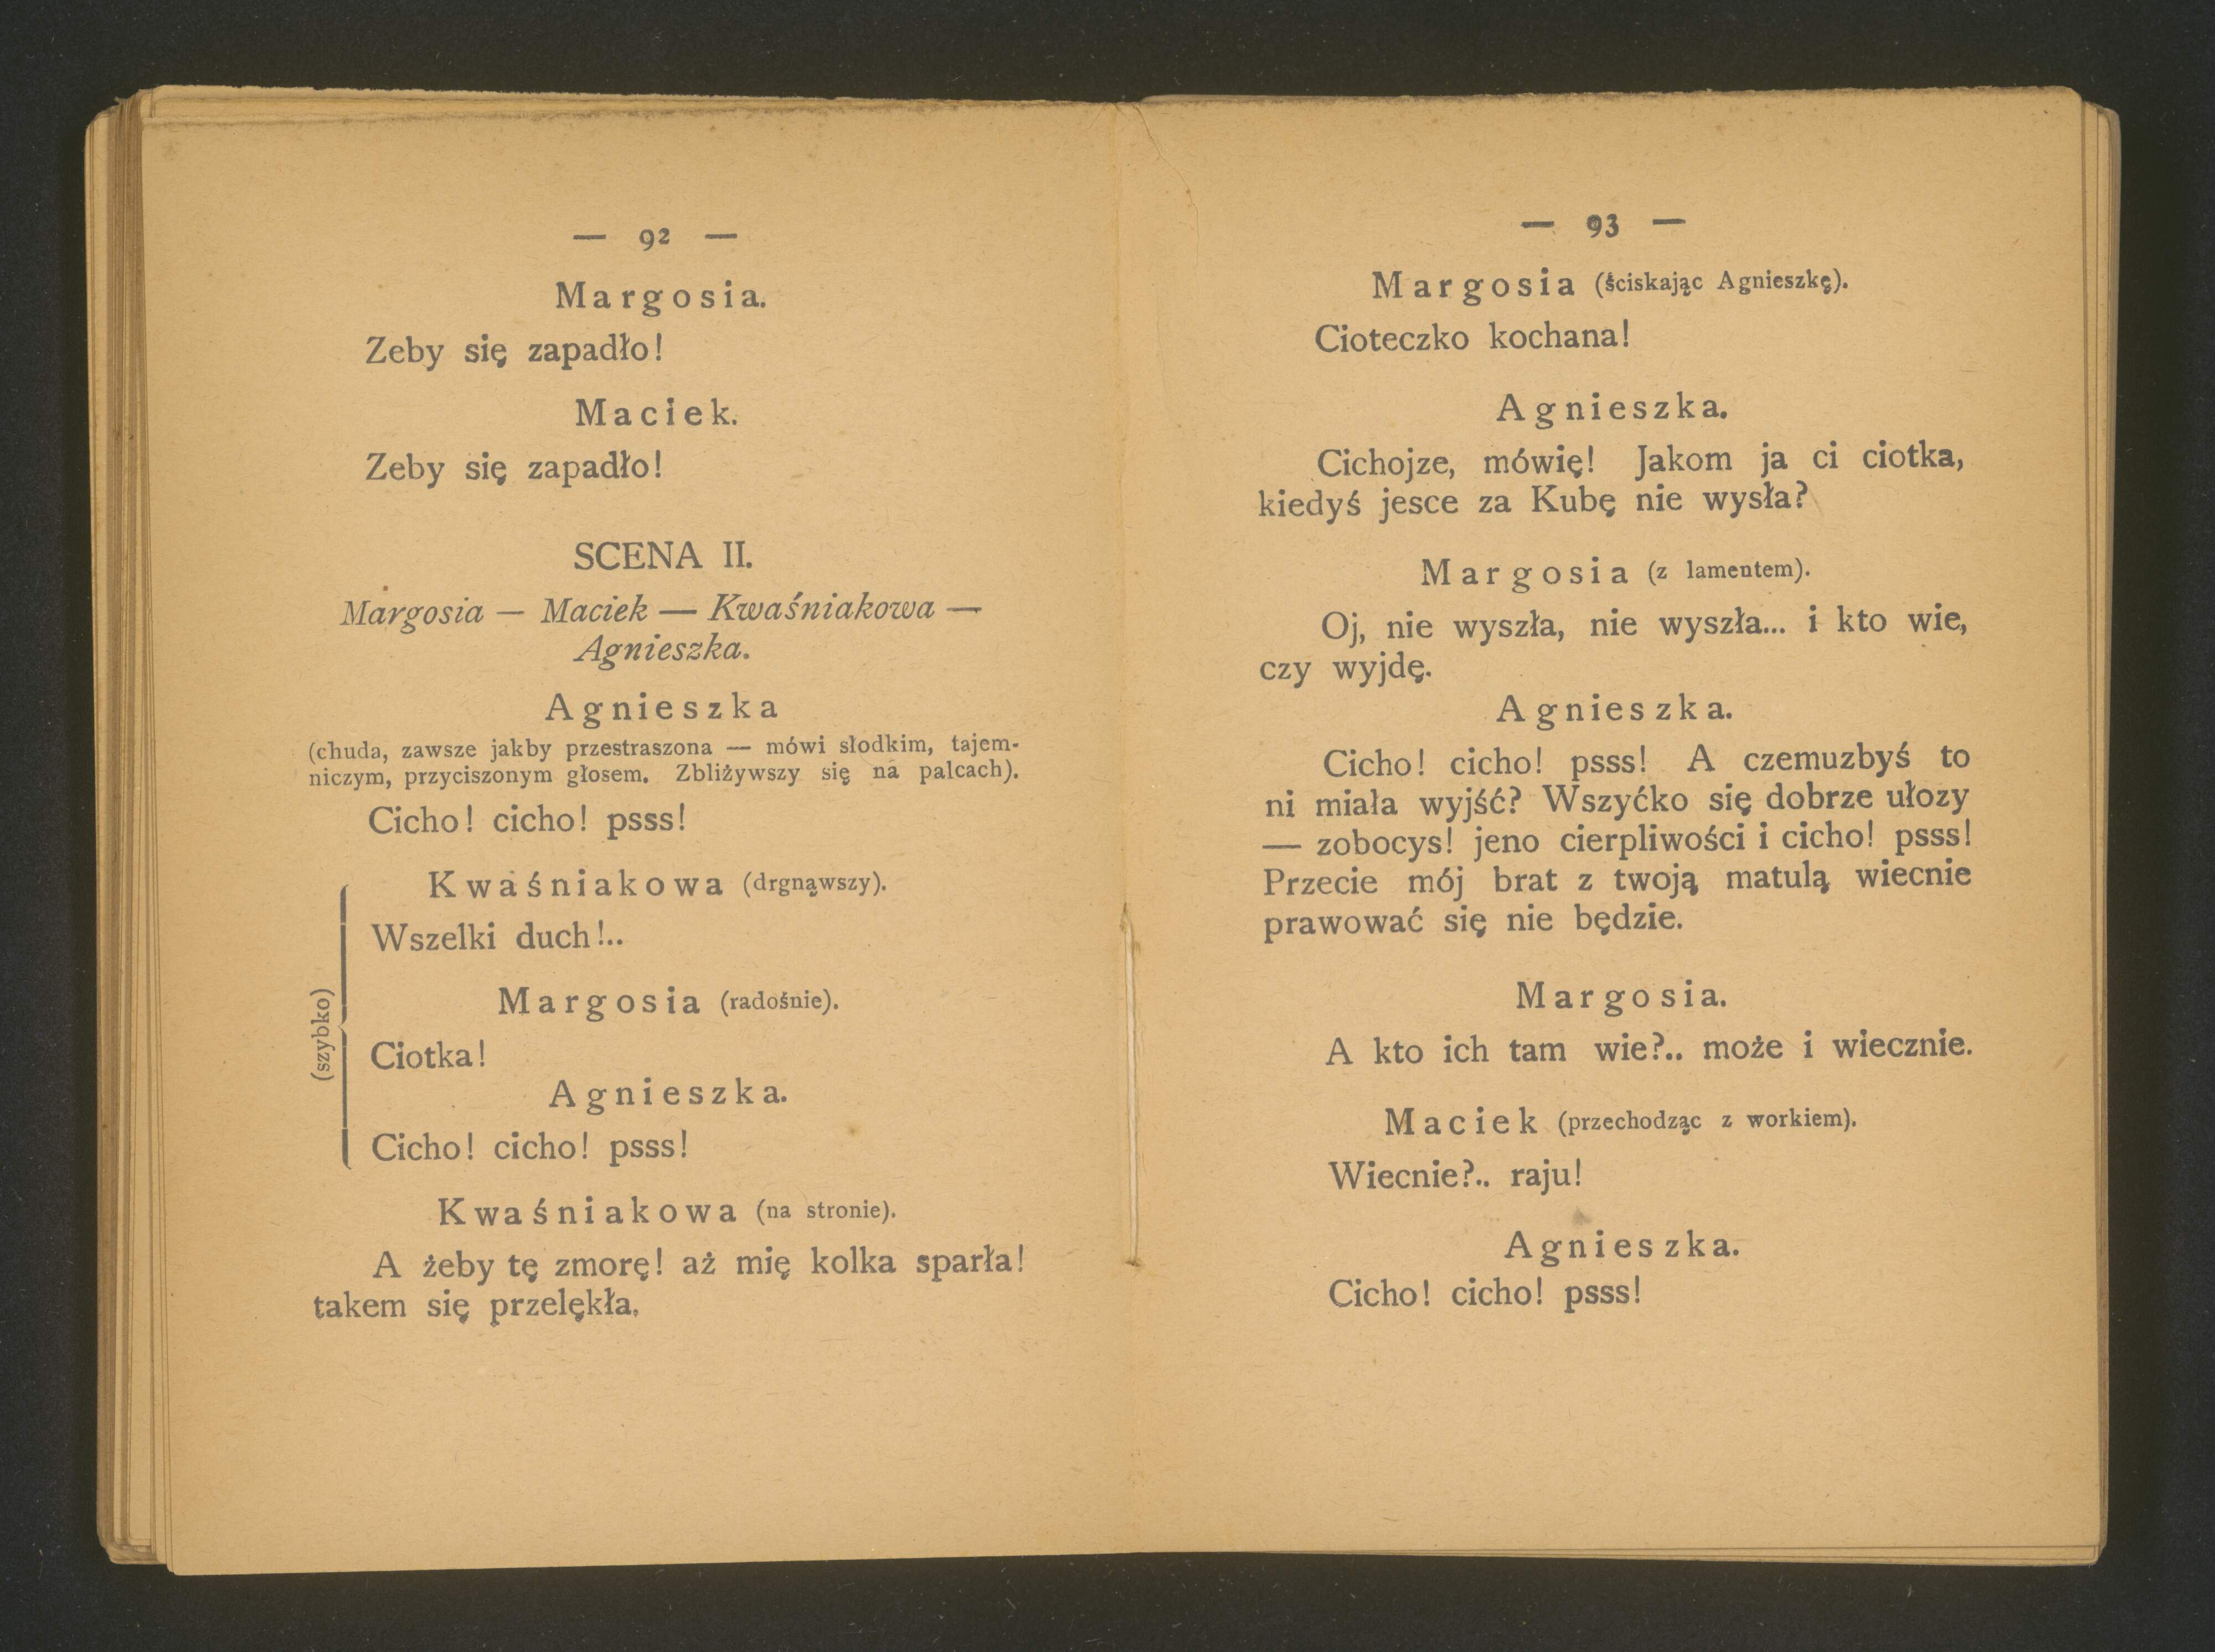 — 92 —
Margosia.
Zeby się zapadło!
Maciek.
Zeby się zapadło!
SCENA II.
Margosia — Maciek — Kwaśniakowa —
Agnieszka.
Agnieszka
(chuda, zawsze jakby przestraszona — mówi słodkim, tajem-
niczym, przyciszonym głosem. Zbliżywszy się na palcach).
Cicho! cicho! psss!
(szybko)
Kwaśniakowa (drgnąwszy).
Wszelki duch!..
Margosia (radośnie).
Ciotka!
Agnieszka.
Cicho! cicho! psss!
Kwaśniakowa (na stronie).
A żeby tę zmorę! aż mię kolka sparła!
takem się przelękła.
— 93 —
Margosia (ściskając Agnieszkę).
Cioteczko kochana!
Agnieszka.
Cichojze, mówię! Jakom ja ci ciotka,
kiedyś jesce za Kubę nie wysła?
Margosia (z lamentem).
Oj, nie wyszła, nie wyszła... i kto wie,
czy wyjdę.
Agnieszka.
Cicho! cicho! psss! A czemuzbyś to
ni miała wyjść? Wszyćko się dobrze ułozy
— zobocys! jeno cierpliwości i cicho! psss!
Przecie mój brat z twoją matulą wiecnie
prawować się nie będzie.
Margosia.
A kto ich tam wie?.. może i wiecznie.
Maciek (przechodząc z workiem).
Wiecnie?.. raju!
Agnieszka.
Cicho! cicho! psss!